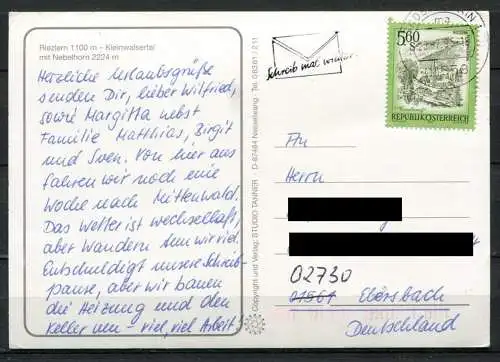 Riezlern 1100 m - Kleinwalsertal
mit Nebelhorn 2224 m
Herzliche Urlaubsgrüße
senden Dir, lieber Wilfried,
sowie Margitta nebst
Familie Matthias, Birgit
und Sven. Von hier aus
fahren wir noch eine
Woche nach Mittenwald.
Das Wetter ist wechselhaft,
aber Wandern tun wir viel.
Entschuldigt unsere Schreib-
pause, aber wir bauen
die Heizung und den
Keller um - viel, viel Arbeit!
Copyright und Verlag: STUDIO TANNER D-87484 Nesselwang · Tel. 08361 / 211
Schreib mal wieder
5,60
S
REPUBLIK ÖSTERREICH
An
Herrn
02730
01561 Ebersbach
Deutschland